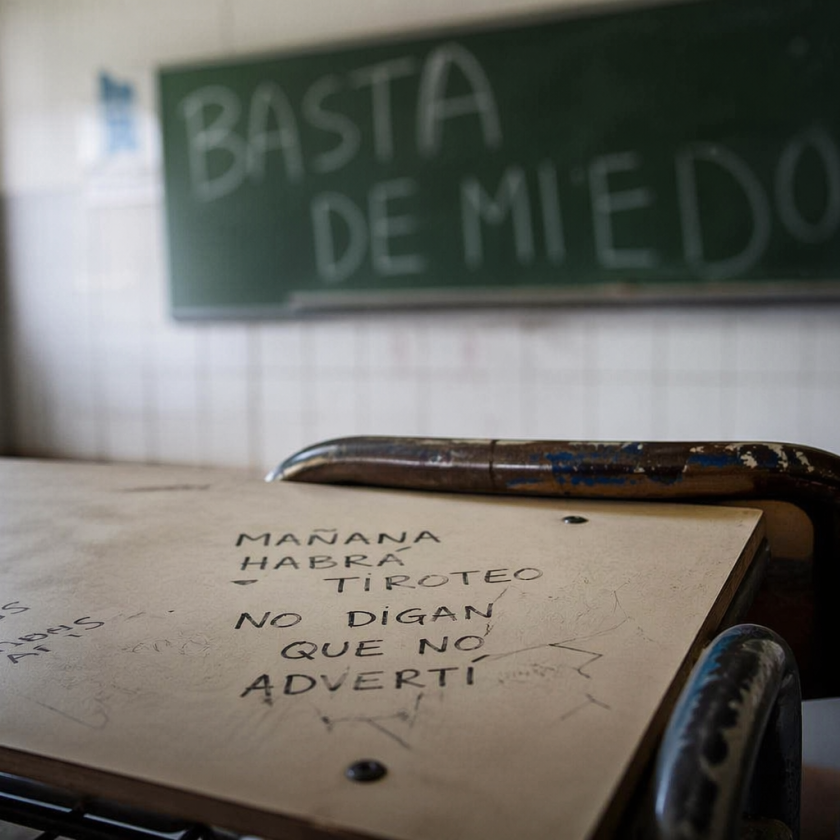 BASTA
DE MIEDO
MAÑANA
HABRÁ
TIROTEO
NO DIGAN
QUE NO
ADVERTÍ